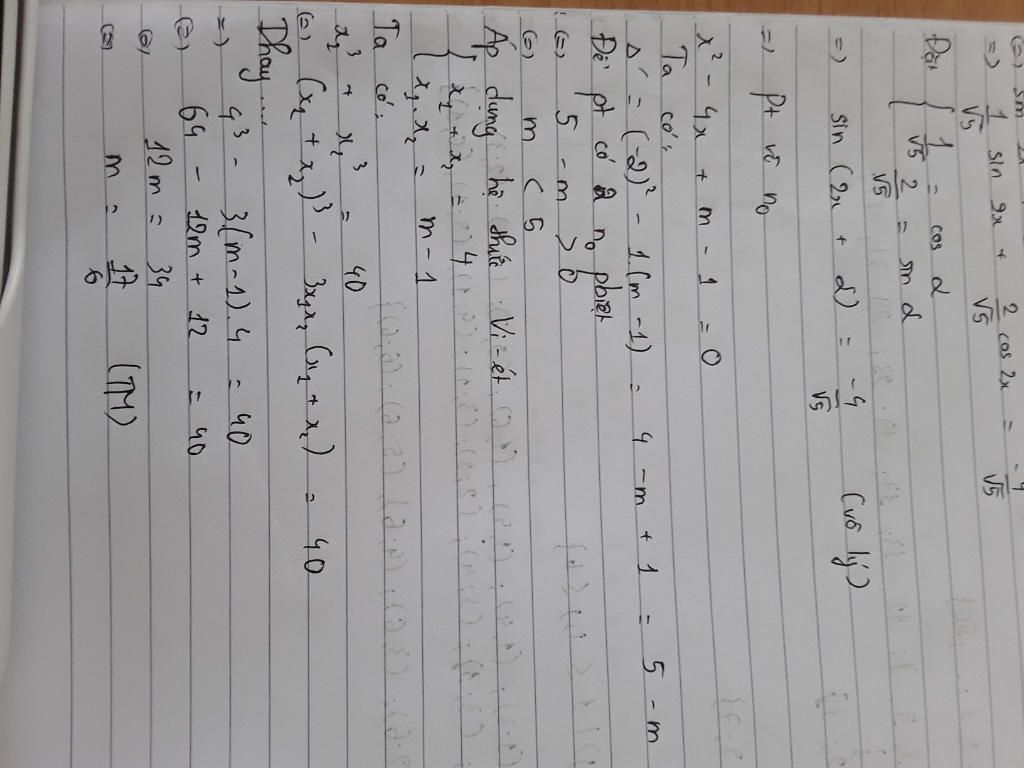 (=) sin 2x
=) 1/√5 sin 2x + 2/√5 cos 2x = -4/√5
Đặt { 1/√5 = cos α
2/√5 = sin α
=) sin (2x + α) = -4/√5 (vô lý)
=) pt vô n₀
x² - 4x + m - 1 = 0
Ta có:
Δ' = (-2)² - 1(m - 1) = 4 - m + 1 = 5 - m
Để pt có 2 n₀ pbiệt
(=) 5 - m > 0
(=) m < 5
Áp dụng hệ thức Vi-ét
{ x₁ + x₂ = 4
x₁x₂ = m - 1
Ta có:
x₁³ + x₂³ = 40
(=) (x₁ + x₂)³ - 3x₁x₂ (x₁ + x₂) = 40
Thay ...
=) 4³ - 3(m-1).4 = 40
(=) 64 - 12m + 12 = 40
(=) 12m = 34
(=) m = 17/6 (TM)